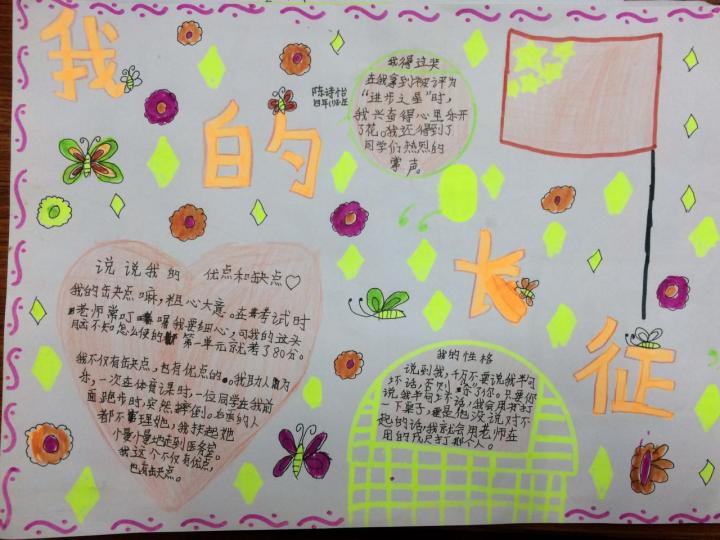 我的长征
陈诗怡
我得过奖
在我拿到被评为
“进步之星”时,
我兴奋得心里乐开
了花。我还得到了
同学们热烈的
掌声。
说说我的 优点和缺点
我的缺点嘛,粗心大意。在考试时
老师常叮嘱我要细心,可我的这头
脑不知怎么使的 第一单元就考了80分。
我不仅有缺点,也有优点的。我助人为
乐,一次在体育课时,一位同学在我前
面跑步时,突然摔倒。后来的人
都不理她,我扶起她
小量小量地走到医务室。
我这个不仅有优点,
也有缺点。
我的性格
说到我,千万不要说我半句
坏话,否则 你了你。只要你
说我半句坏话,我会用书打
一下桌子,要是他没说对不
起的话,我就会用老师在
用的戒尺打那个人。